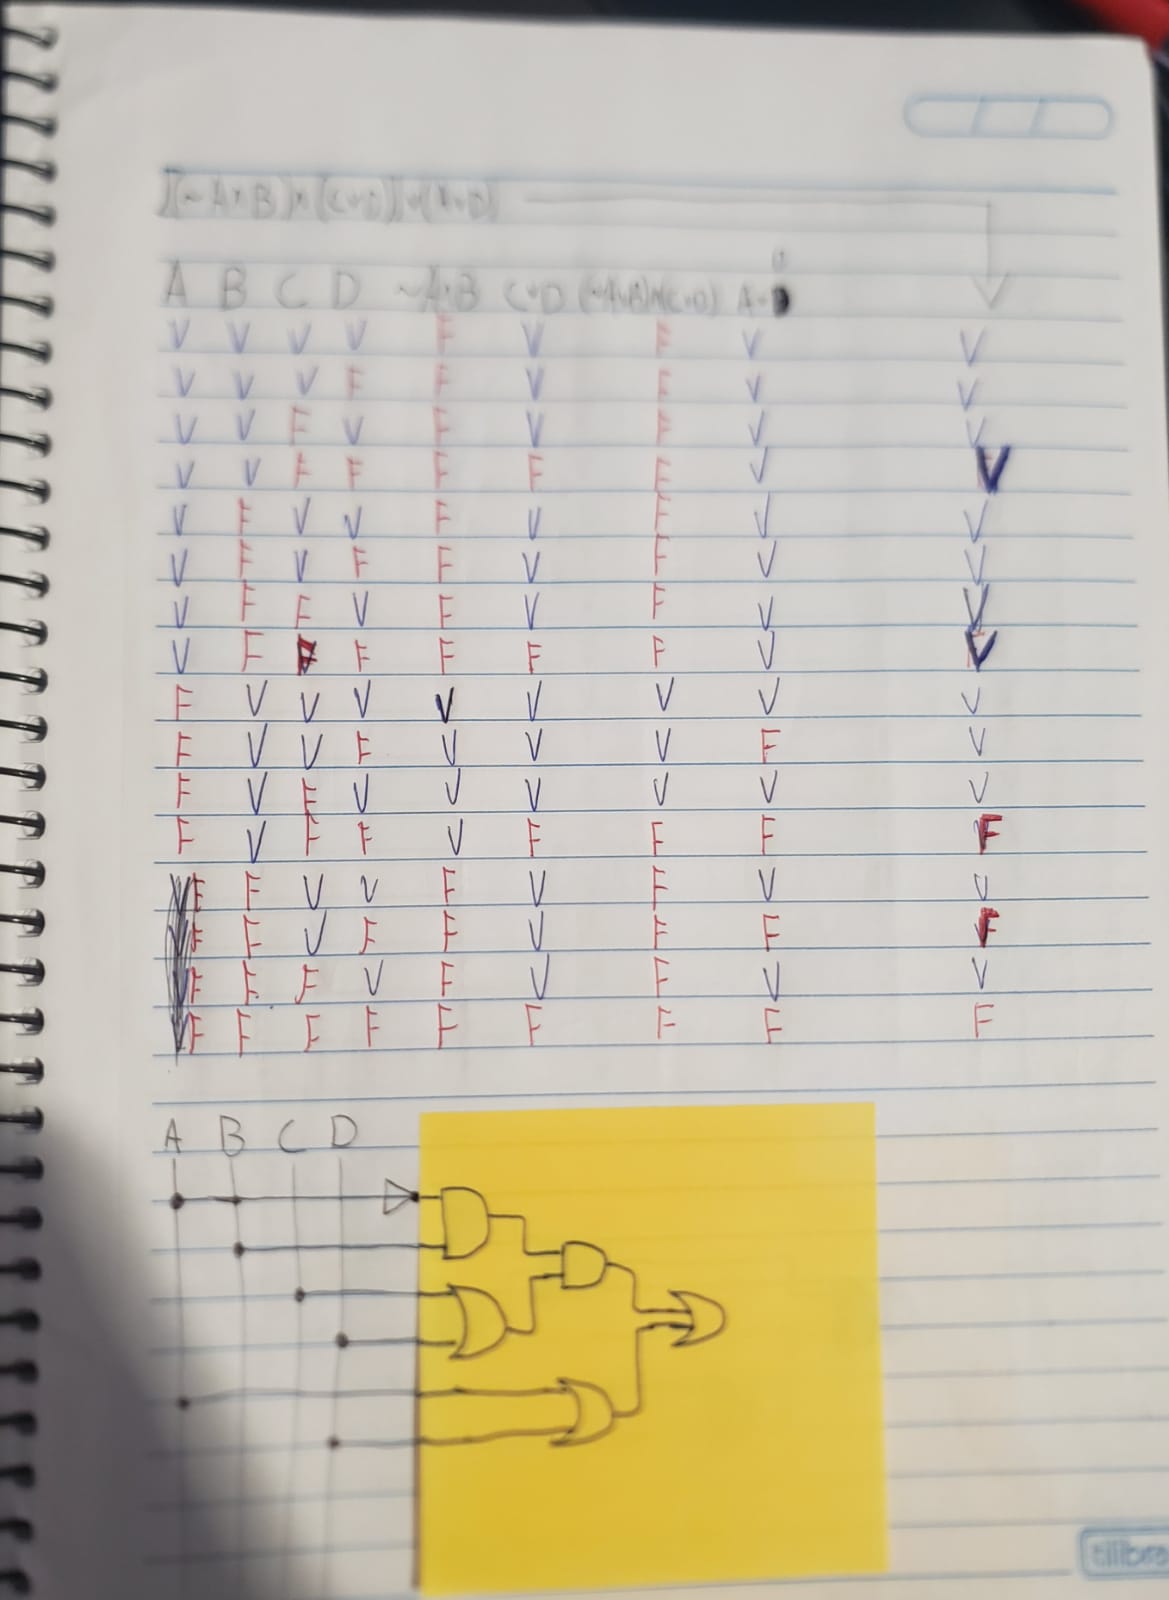 [(~A^B)^(CvD)]v(AvD)
A B C D ~A^B CvD (~A^B)^(CvD) AvD
V V V V F V F V V
V V V F F V F V V
V V F V F V F V V
V V F F F F F V V
V F V V F V F V V
V F V F F V F V V
V F F V F V F V V
V F F F F F F V V
F V V V V V V V V
F V V F V V V F V
F V F V V V V V V
F V F F V F F F F
F F V V F V F V V
F F V F F V F F F
F F F V F V F V V
F F F F F F F F F
A B C D
tilibra